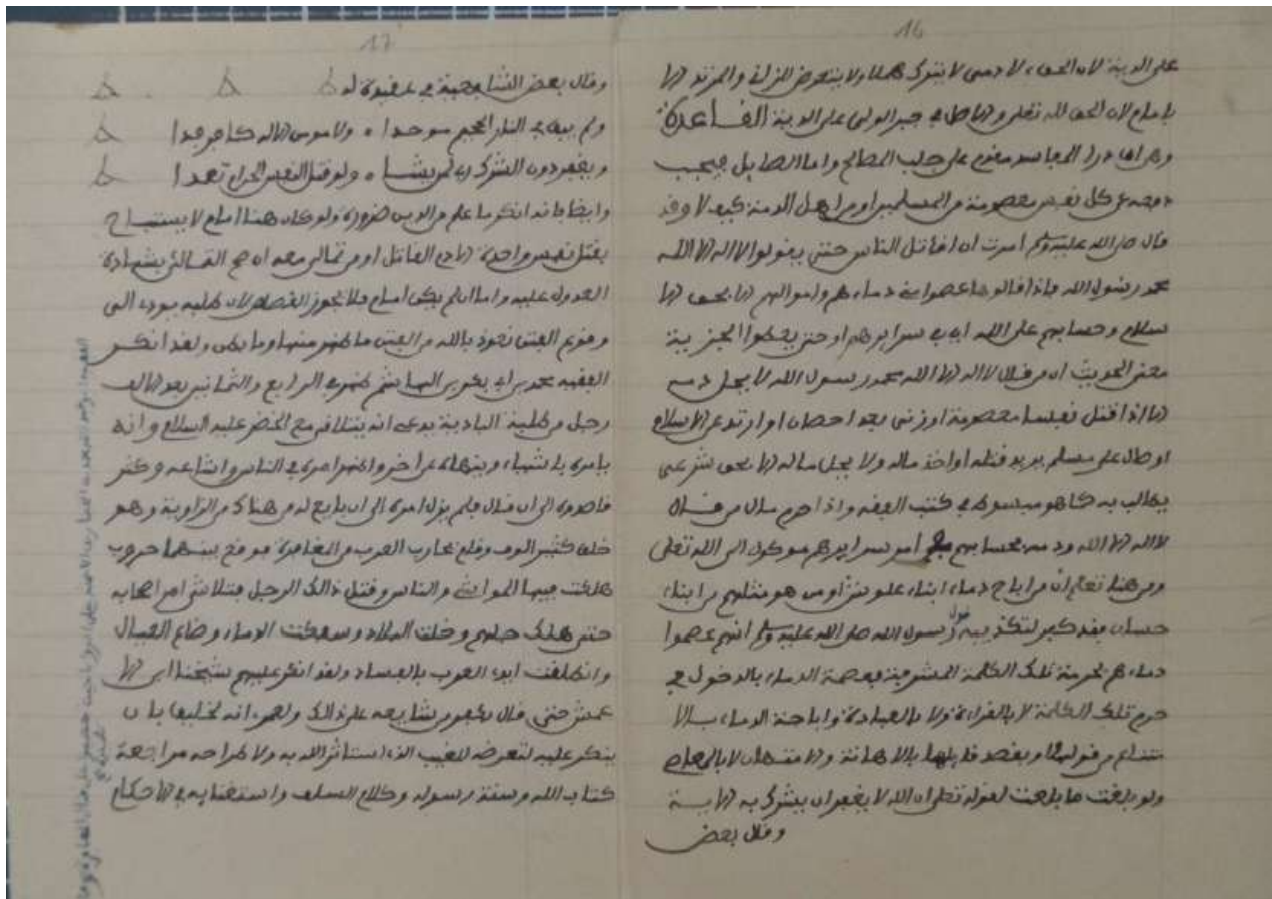 16
على الدية لان الحق لادمى لا يترك هملا ولا يتعرض للزلة والمرتد الا
بامام لان الحق لله تعلى والاصل في جبر الولى على الدية الفاعدة
وهى ان درا المفاسد مقدم على جلب المصالح واما الصايل فيجب
دفعه عن كل نفس معصومة من المسلمين او من اهل الذمة كيف لا وقد
قال صلى الله عليه وسلم امرت ان اقاتل الناس حتى يقولوا لا اله الا الله
محمد رسول الله فاذا قالوها عصموا منى دماءهم واموالهم الا بحق الا
سلام وحسابهم على الله اي في سرايرهم او حتى يعطوا الجزية
معنى الحديث ان من قال لا اله الا الله محمد رسول الله لا يحل دمه
الا اذا قتل نفسا معصومة او زنى بعد احصان او ارتد عن الاسلام
او صال على مسلم يريد قتله او اخذ ماله ولا يحل ماله الا بحق شرعى
يطالب به كما هو مبسوط في كتب الفقه واذا حرم مال من قال
لا اله الا الله ودمه فحسابهم في امر سرايرهم موكول الى الله تعلى
ومن هنا تعلم ان من اباح دماء ابناء علوش او من هو مثلهم من ابناء
حسان فقد كفر لتكذيبه قول رسول الله صلى الله عليه وسلم انهم عصموا
دماءهم لحرمة تلك الكلمة المشرفة فعصمة الدماء بالدخول في
حرم تلك الكلمة لا بالقراءة ولا بالعبادة واباحة الدماء بالا
متناع من قولها او بقصد قايلها بالاهانة والامتهان لا بالمعاصى
ولو بلغت ما بلغت لقوله تعلى ان الله لا يغفر ان يشرك به الاية
وقال بعض
17
وقال بعض الشافعية في عقيدة له
ولم يبق في النار الجحيم موحدا ولو
ويغفر دون الشرك ربى لمن يشا ولو قتل النفس الحرام تعمدا
وايضا فانه انكر ما علم من الدين ضرورة ولو كان هنا امام لا يستباح
بقتل نفس واحدة الا دم القاتل او من تمالى معه ان صح القتال بشهادة
العدول عليه واما ان لم يكن امام فلا يجوز القصاص لان طلبه يودى الى
وقوع الفتن نعوذ بالله من الفتن ما ظهر منها وما بطن ولقد انكر
الفقيه محمد بن ابى بكر الهاشم ظهر في الرابع والثمانين بعد الالف
رجل من طلبة البادية يدعى انه يتلاقى مع الخضر عليه السلام وانه
يامره باشياء وينهاه عن اخر واظهر امره في الناس واشاعه وكثر
قاصدوه الى ان قال فلم يزل امره الى ان بايع له من هناك من الزاوية وهو
خلق كثير الوف وقع محارب العرب و فوقع بينهما حروب
هلكت فيها المواشى والناس وقتل ذلك الرجل وتلاشى امر اصحابه
حتى هلك جلهم وخلت البلاد وسفكت الدماء وضاع العيال
وانطلقت ايدى العرب بالفساد ولقد انكر عليهم شيخنا ابى الا
عمش حتى قال بكفر من شايعه على ذلك ولعمرى انه لخليق بان
ينكر عليه لتعرضه للغيب الذى استاثر الله به ولا طراحه مراجعة
كتاب الله وسنة رسوله وكلام السلف واستغنايه في الاحكام